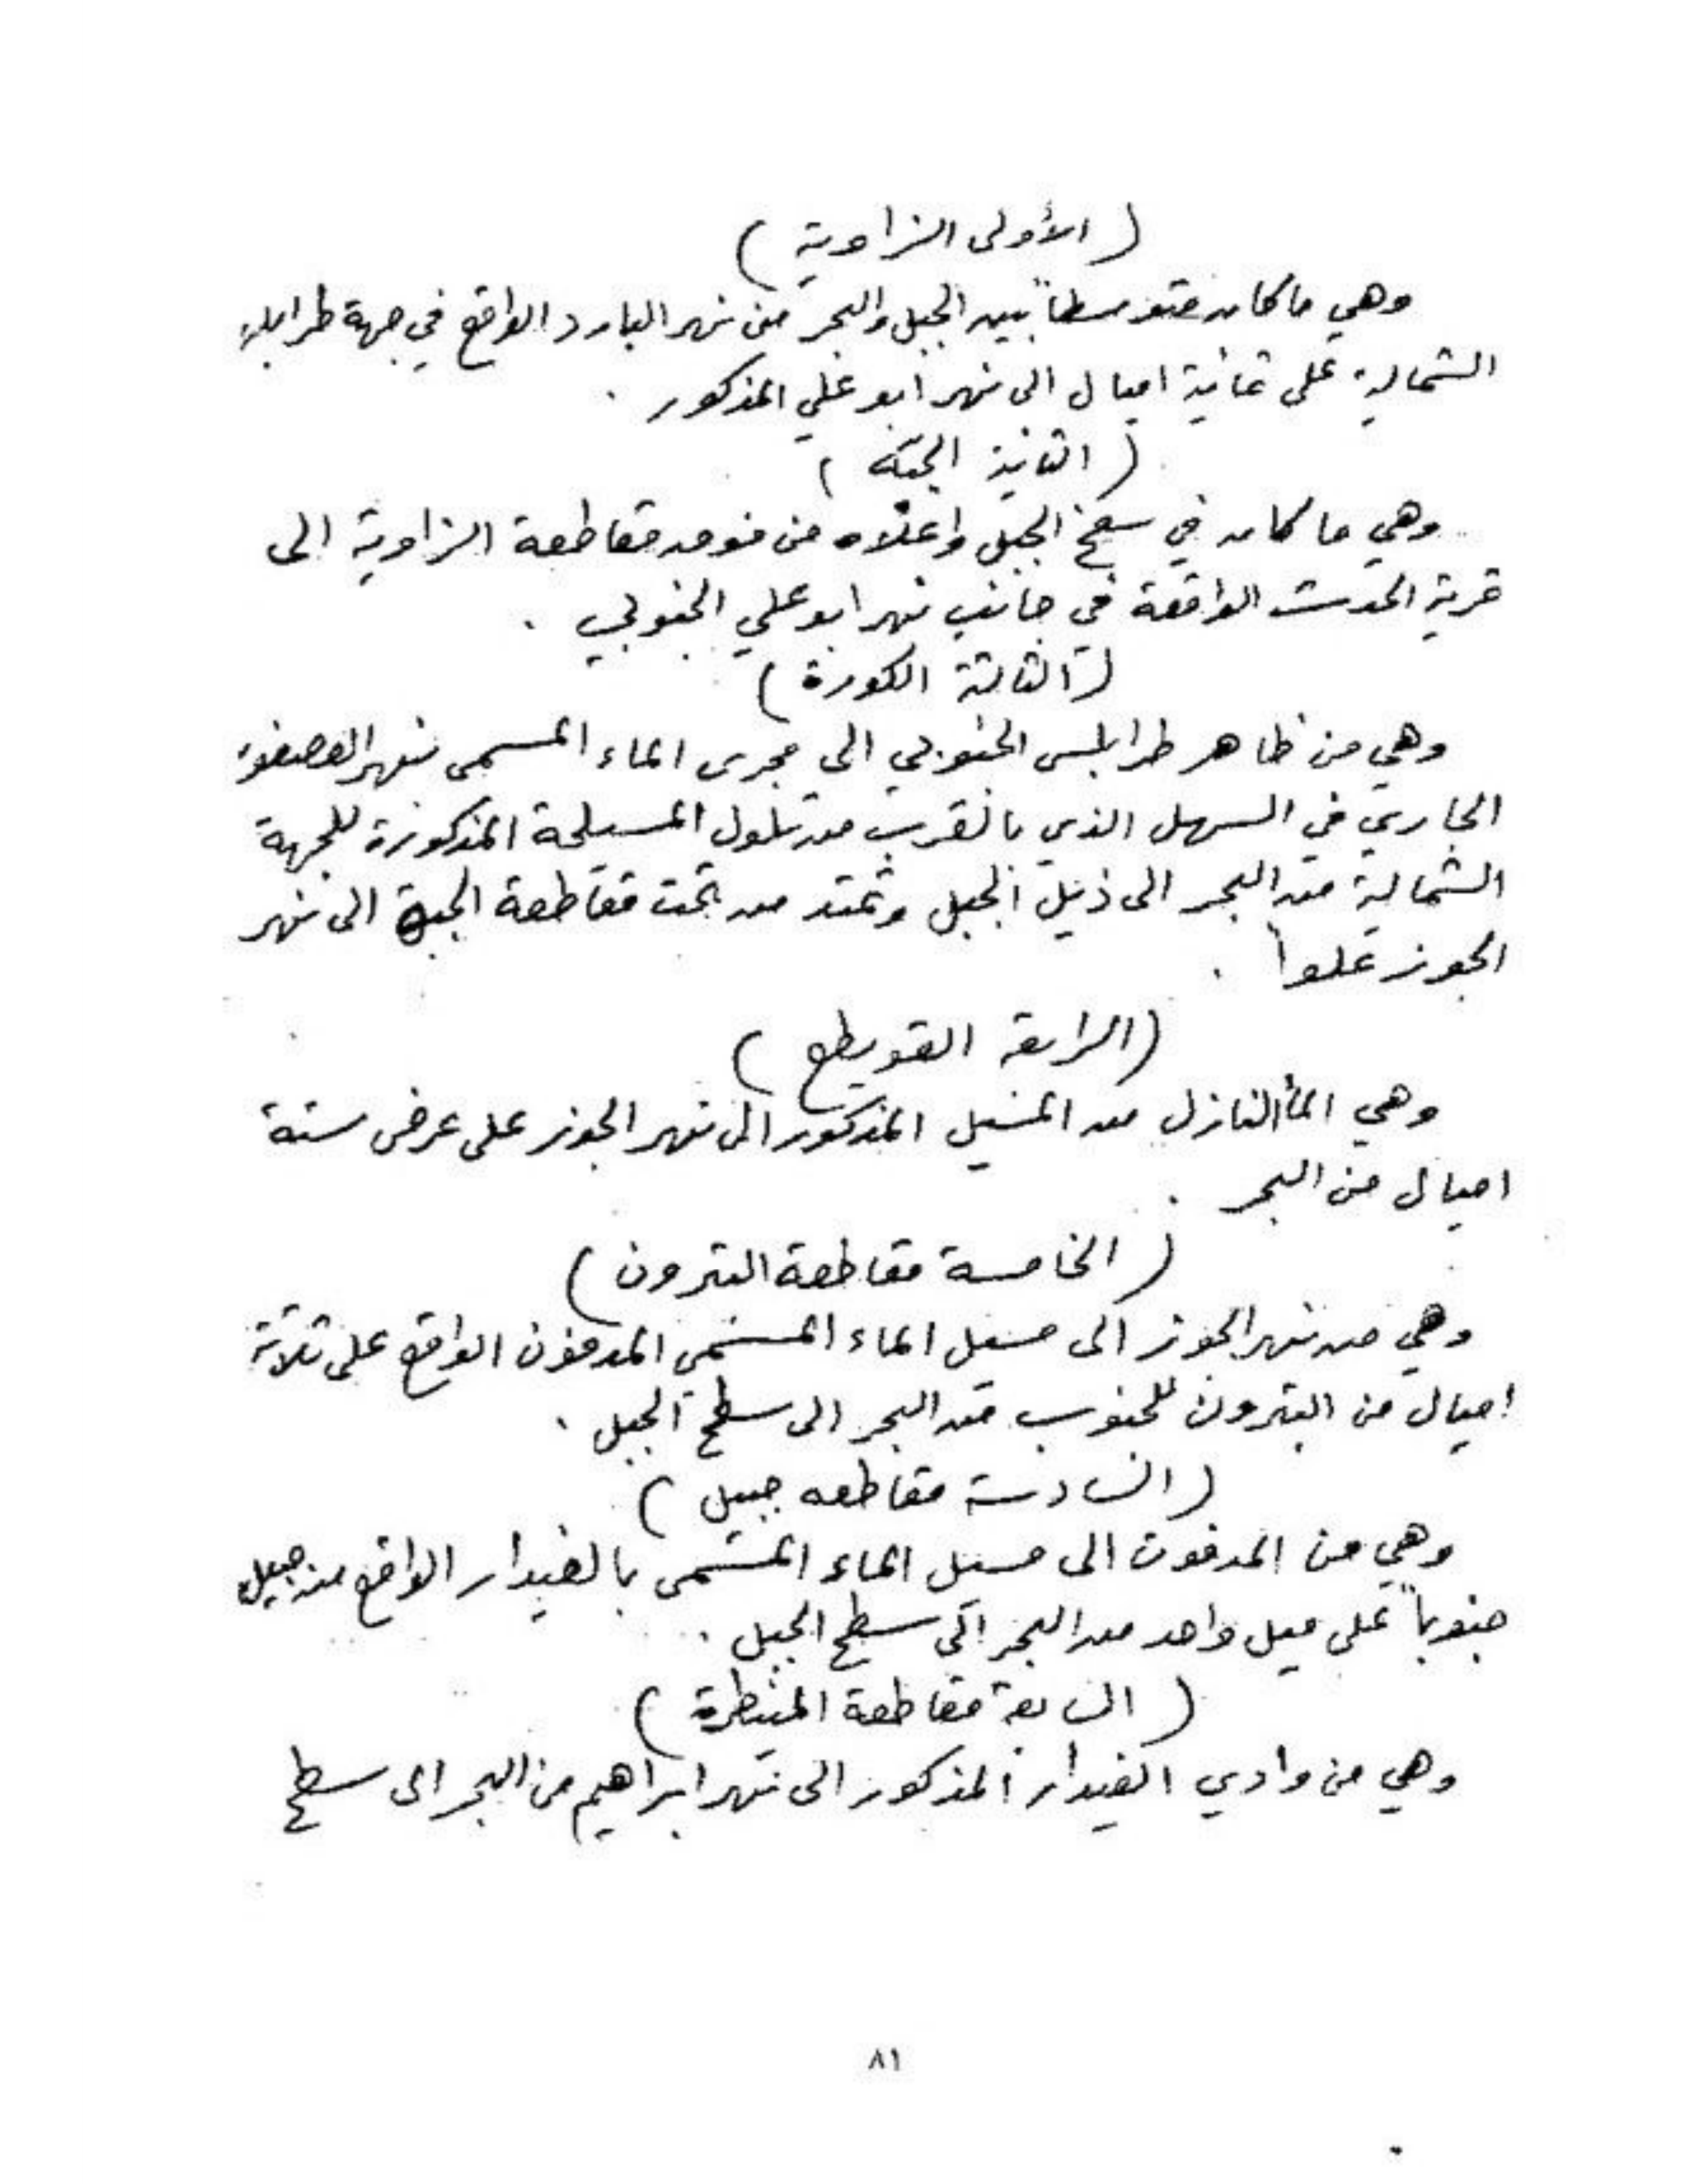 ( الأولى الزاوية )
وهي ما كان متوسطاً بين الجبل والبحر من نهر البارد الواقع في جهة طرابلس
الشمالية على ثمانية اميال الى نهر ابو علي المذكور .
( الثانية الجبّة )
وهي ما كان في سفح الجبل واعلاه من فوق مقاطعة الزاوية الى
قرية الحدث الواقعة في جانب نهر ابو علي الجنوبي .
( الثالثة الكورة )
وهي من ظاهر طرابلس الجنوبي الى مجرى الماء المسمى بنهر العصفور
الجاري في السهل الذي بالقرب من تلول المسيلحة المذكورة للجهة
الشمالية من البحر الى ذيل الجبل وتمتد من تحت مقاطعة الجبة الى نهر
الجوز علواً .
( الرابعة القويطع )
وهي النازل من المسيل المذكور الى نهر الجوز على عرض ستة
اميال من البحر .
( الخامسة مقاطعة البترون )
وهي من نهر الجوز الى مسيل الماء المسمى المدفون الواقع على ثلاثة
اميال من البترون للجنوب من البحر الى سطح الجبل .
( السادسة مقاطعه جبيل )
وهي من المدفون الى مسيل الماء المسمى بالفيدار الواقع من جبيل
جنوباً على ميل واحد من البحر الى سطح الجبل .
( السابعة مقاطعة المنيطرة )
وهي من وادي الفيدار المذكور الى نهر ابراهيم من البحر الى سطح
٨١